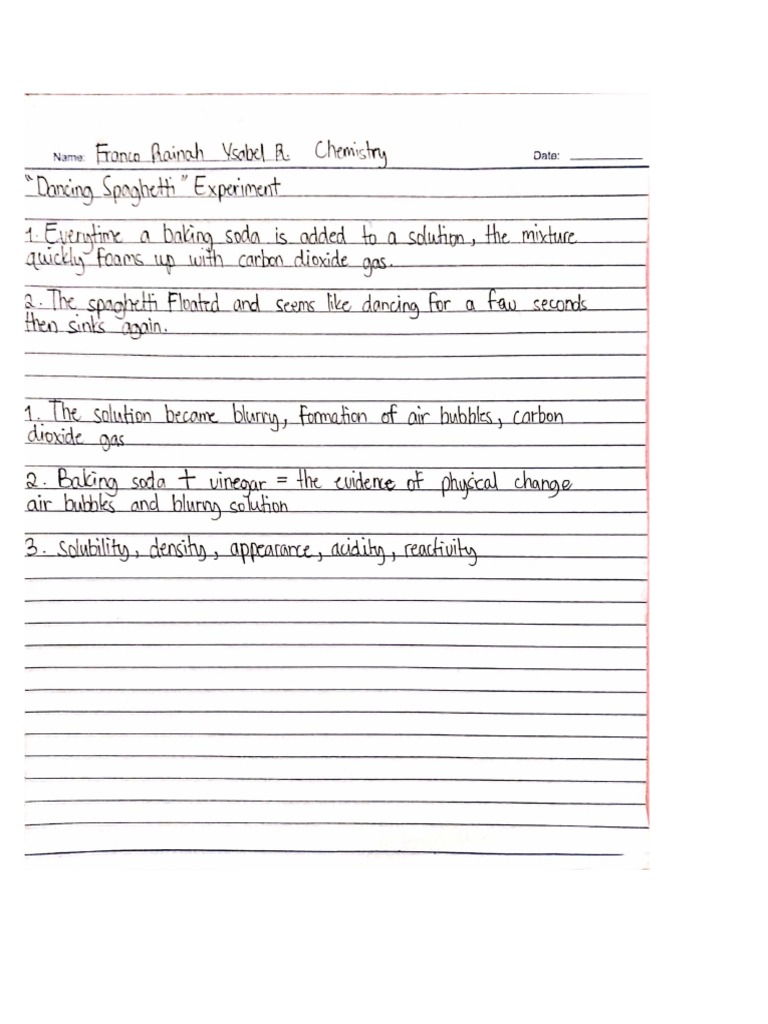 Name: Franco Rainah Ysabel R. Chemistry Date:
"Dancing Spaghetti" Experiment
1. Everytime a baking soda is added to a solution, the mixture
quickly foams up with carbon dioxide gas.
2. The spaghetti floated and seems like dancing for a few seconds
then sinks again.
1. The solution became blurry, formation of air bubbles, carbon
dioxide gas
2. Baking soda + vinegar = the evidence of physical change
air bubbles and blurry solution
3. Solubility, density, appearance, acidity, reactivity